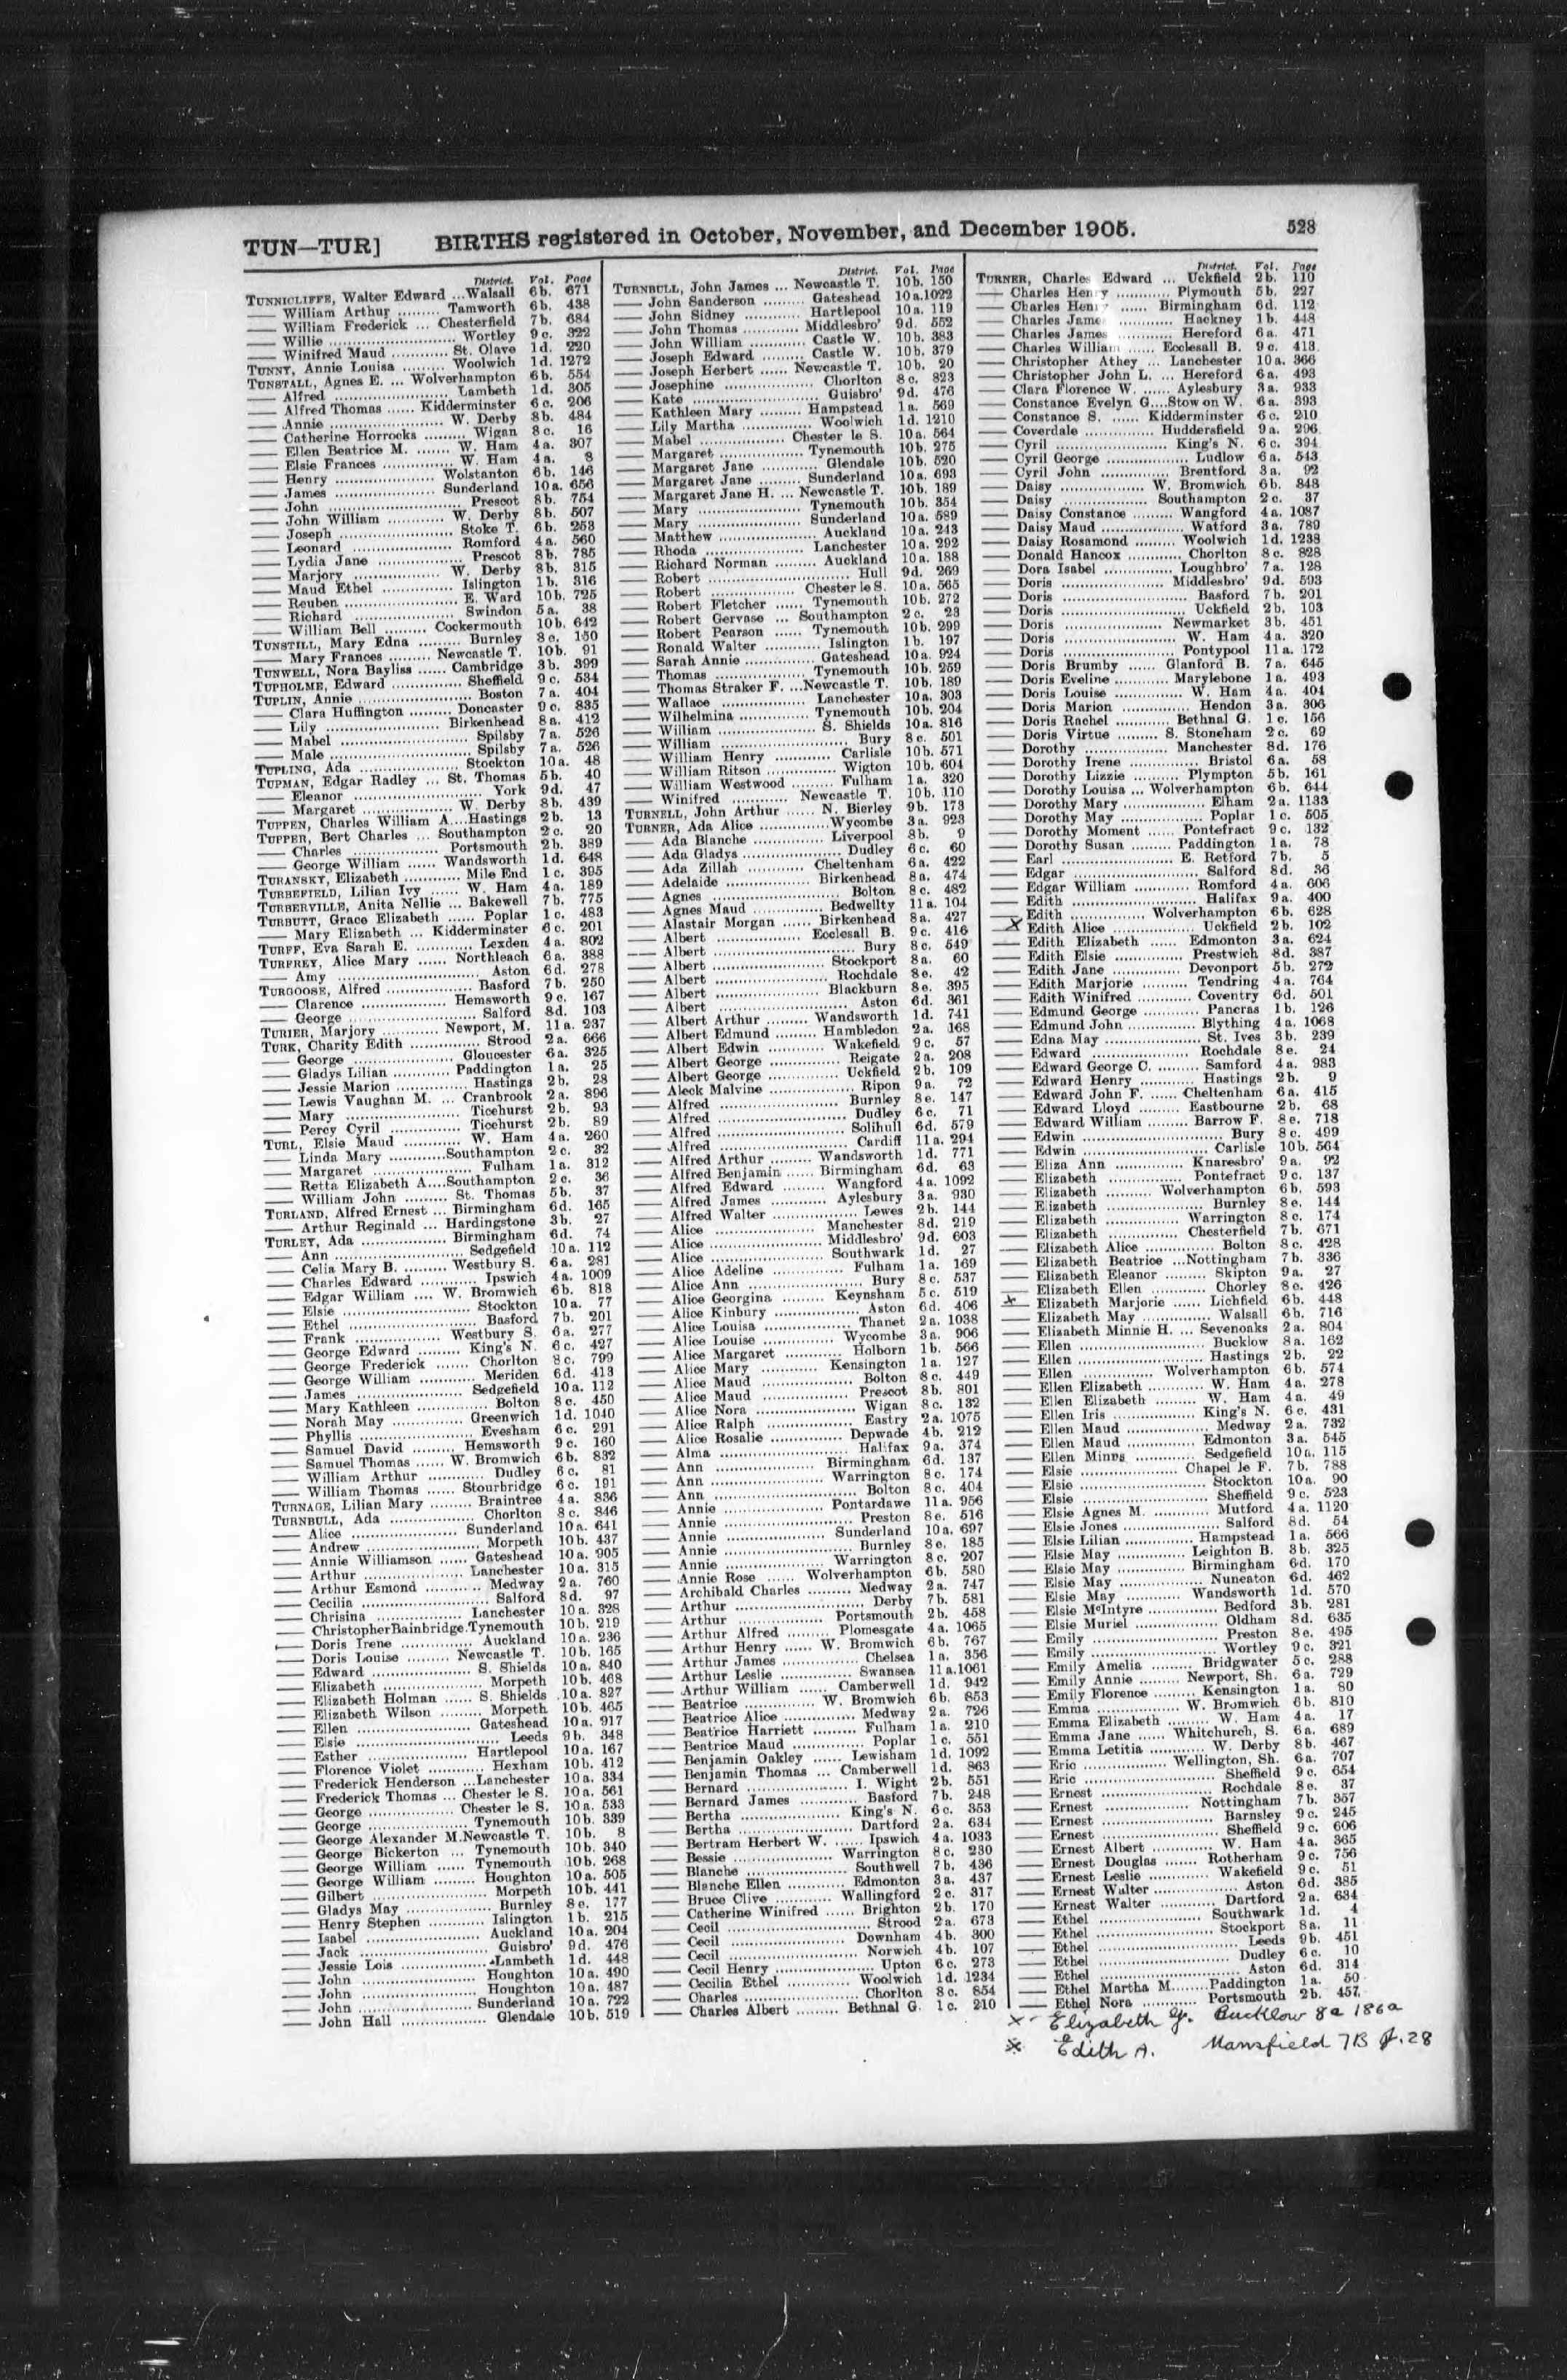 TUN—TUR]
BIRTHS registered in October, November, and December 1905.
528
District. Vol. Page
TUNNICLIFFE, Walter Edward ...Walsall 6b. 671
—— William Arthur ......... Tamworth 6b. 438
—— William Frederick ... Chesterfield 7b. 684
—— Willie ........................... Wortley 9c. 322
—— Winifred Maud ............ St. Olave 1d. 220
TUNNY, Annie Louisa ......... Woolwich 1d. 1272
TUNSTALL, Agnes E. ... Wolverhampton 6b. 554
—— Alfred ........................... Lambeth 1d. 305
—— Alfred Thomas ...... Kidderminster 6c. 206
—— Annie ........................ W. Derby 8b. 484
—— Catherine Horrocks ......... Wigan 8c. 16
—— Ellen Beatrice M. ....... W. Ham 4a. 307
—— Elsie Frances ................ W. Ham 4a. 8
—— Henry ...................... Wolstanton 6b. 146
—— James ...................... Sunderland 10a. 656
—— John ............................. Prescot 8b. 754
—— John William ............ W. Derby 8b. 507
—— Joseph ........................ Stoke T. 6b. 253
—— Leonard ..................... Romford 4a. 560
—— Lydia Jane ..................... Prescot 8b. 785
—— Marjory .................. W. Derby 8b. 315
—— Maud Ethel ............... Islington 1b. 316
—— Reuben ........................ E. Ward 10b. 725
—— Richard ....................... Swindon 5a. 38
—— William Bell ......... Cockermouth 10b. 642
TUNSTILL, Mary Edna ....... Burnley 8e. 150
—— Mary Frances ......... Newcastle T. 10b. 91
TUNWELL, Nora Bayliss ...... Cambridge 3b. 399
TUPHOLME, Edward ............... Sheffield 9c. 534
TUPLIN, Annie ......................... Boston 7a. 404
—— Clara Huffington ......... Doncaster 9c. 835
—— Lily ......................... Birkenhead 8a. 412
—— Mabel .......................... Spilsby 7a. 526
—— Male ............................ Spilsby 7a. 526
TUPLING, Ada ..................... Stockton 10a. 48
TUPMAN, Edgar Radley ... St. Thomas 5b. 40
—— Eleanor ........................... York 9d. 47
—— Margaret .................. W. Derby 8b. 439
TUPPEN, Charles William A....Hastings 2b. 13
TUPPER, Bert Charles ... Southampton 2c. 20
—— Charles .................. Portsmouth 2b. 389
—— George William ...... Wandsworth 1d. 648
TURANSKY, Elizabeth ............ Mile End 1c. 395
TURBEFIELD, Lilian Ivy ...... W. Ham 4a. 189
TURBERVILLE, Anita Nellie ... Bakewell 7b. 775
TURBUTT, Grace Elizabeth ...... Poplar 1c. 483
—— Mary Elizabeth ... Kidderminster 6c. 201
TURFF, Eva Sarah E. ............ Lexden 4a. 802
TURFREY, Alice Mary ...... Northleach 6a. 388
—— Amy ............................ Aston 6d. 278
TURGOOSE, Alfred .................. Basford 7b. 250
—— Clarence .................. Hemsworth 9c. 167
—— George ........................... Salford 8d. 103
TURIER, Marjory ............ Newport, M. 11a. 237
TURK, Charity Edith ............... Strood 2a. 666
—— George ..................... Gloucester 6a. 325
—— Gladys Lilian ............ Paddington 1a. 25
—— Jessie Marion ............... Hastings 2b. 28
—— Lewis Vaughan M. ... Cranbrook 2a. 896
—— Mary ......................... Ticehurst 2b. 93
—— Percy Cyril ............... Ticehurst 2b. 89
TURL, Elsie Maud ............ W. Ham 4a. 260
—— Linda Mary ............Southampton 2c. 32
—— Margaret ........................ Fulham 1a. 312
—— Retta Elizabeth A....Southampton 2c. 36
—— William John ......... St. Thomas 5b. 37
TURLAND, Alfred Ernest ... Birmingham 6d. 165
—— Arthur Reginald ... Hardingstone 3b. 27
TURLEY, Ada .................. Birmingham 6d. 74
—— Ann ........................... Sedgefield 10a. 112
—— Celia Mary B. ......... Westbury S. 6a. 281
—— Charles Edward ............ Ipswich 4a. 1009
—— Edgar William .... W. Bromwich 6b. 818
—— Elsie ........................... Stockton 10a. 77
—— Ethel ........................... Basford 7b. 201
—— Frank .................. Westbury S. 6a. 277
—— George Edward ......... King's N. 6c. 427
—— George Frederick ....... Chorlton 8c. 799
—— George William ............ Meriden 6d. 413
—— James ...................... Sedgefield 10a. 112
—— Mary Kathleen ............... Bolton 8c. 450
—— Norah May ............... Greenwich 1d. 1040
—— Phyllis ........................ Evesham 6c. 291
—— Samuel David ......... Hemsworth 9c. 160
—— Samuel Thomas ...... W. Bromwich 6b. 832
—— William Arthur ............ Dudley 6c. 81
—— William Thomas ...... Stourbridge 6c. 191
TURNAGE, Lilian Mary ......... Braintree 4a. 836
TURNBULL, Ada .................. Chorlton 8c. 846
—— Alice ...................... Sunderland 10a. 641
—— Andrew ........................ Morpeth 10b. 437
—— Annie Williamson ...... Gateshead 10a. 905
—— Arthur ..................... Lanchester 10a. 315
—— Arthur Esmond ............ Medway 2a. 760
—— Cecilia ........................... Salford 8d. 97
—— Chrisina .................. Lanchester 10a. 328
—— ChristopherBainbridge.Tynemouth 10b. 219
—— Doris Irene ............... Auckland 10a. 236
—— Doris Louise ......... Newcastle T. 10b. 165
—— Edward ..................... S. Shields 10a. 840
—— Elizabeth ..................... Morpeth 10b. 468
—— Elizabeth Holman ...... S. Shields 10a. 827
—— Elizabeth Wilson ......... Morpeth 10b. 465
—— Ellen ........................ Gateshead 10a. 917
—— Elsie .............................. Leeds 9b. 348
—— Esther ..................... Hartlepool 10a. 167
—— Florence Violet ............ Hexham 10b. 412
—— Frederick Henderson ...Lanchester 10a. 334
—— Frederick Thomas ... Chester le S. 10a. 561
—— George .................. Chester le S. 10a. 533
—— George ..................... Tynemouth 10b. 339
—— George Alexander M.Newcastle T. 10b. 8
—— George Bickerton ... Tynemouth 10b. 340
—— George William ...... Tynemouth 10b. 268
—— George William ......... Houghton 10a. 505
—— Gilbert ........................ Morpeth 10b. 441
—— Gladys May .................. Burnley 8e. 177
—— Henry Stephen ............ Islington 1b. 215
—— Isabel ........................ Auckland 10a. 204
—— Jack ........................... Guisbro' 9d. 476
—— Jessie Lois .................. Lambeth 1d. 448
—— John ........................ Houghton 10a. 490
—— John ........................ Houghton 10a. 487
—— John ........................ Sunderland 10a. 722
—— John Hall .................. Glendale 10b. 519
District. Vol. Page
TURNBULL, John James ... Newcastle T. 10b. 150
—— John Sanderson ......... Gateshead 10a.1022
—— John Sidney ............ Hartlepool 10a. 119
—— John Thomas ............ Middlesbro' 9d. 552
—— John William ............ Castle W. 10b. 383
—— Joseph Edward ......... Castle W. 10b. 379
—— Joseph Herbert ...... Newcastle T. 10b. 20
—— Josephine ................... Chorlton 8c. 823
—— Kate ........................... Guisbro' 9d. 476
—— Kathleen Mary ......... Hampstead 1a. 569
—— Lily Martha ............... Woolwich 1d. 1210
—— Mabel .................. Chester le S. 10a. 564
—— Margaret .................. Tynemouth 10b. 275
—— Margaret Jane ............ Glendale 10b. 520
—— Margaret Jane ......... Sunderland 10a. 693
—— Margaret Jane H. ... Newcastle T. 10b. 189
—— Mary ........................ Tynemouth 10b. 354
—— Mary ........................ Sunderland 10a. 589
—— Matthew ..................... Auckland 10a. 243
—— Rhoda ..................... Lanchester 10a. 292
—— Richard Norman ......... Auckland 10a. 188
—— Robert .............................. Hull 9d. 269
—— Robert ..................... Chester le S. 10a. 565
—— Robert Fletcher ...... Tynemouth 10b. 272
—— Robert Gervase ... Southampton 2c. 23
—— Robert Pearson ...... Tynemouth 10b. 299
—— Ronald Walter ............ Islington 1b. 197
—— Sarah Annie ............... Gateshead 10a. 924
—— Thomas ..................... Tynemouth 10b. 259
—— Thomas Straker F. ...Newcastle T. 10b. 189
—— Wallace ..................... Lanchester 10a. 303
—— Wilhelmina ............... Tynemouth 10b. 204
—— William ..................... S. Shields 10a. 816
—— William ........................... Bury 8c. 501
—— William Henry ............ Carlisle 10b. 571
—— William Ritson ............ Wigton 10b. 604
—— William Westwood ......... Fulham 1a. 320
—— Winifred ............ Newcastle T. 10b. 110
TURNELL, John Arthur ...... N. Bierley 9b. 173
TURNER, Ada Alice ...............Wycombe 3a. 923
—— Ada Blanche ............... Liverpool 8b. 9
—— Ada Gladys ..................... Dudley 6c. 60
—— Ada Zillah ............... Cheltenham 6a. 422
—— Adelaide .................. Birkenhead 8a. 474
—— Agnes ........................... Bolton 8c. 482
—— Agnes Maud ............... Bedwellty 11a. 104
—— Alastair Morgan ...... Birkenhead 8a. 427
—— Albert .................. Ecclesall B. 9c. 416
—— Albert .............................. Bury 8c. 549
—— Albert ........................ Stockport 8a. 60
—— Albert ........................ Rochdale 8e. 42
—— Albert ..................... Blackburn 8e. 395
—— Albert ........................... Aston 6d. 361
—— Albert Arthur ......... Wandsworth 1d. 741
—— Albert Edmund ...... Hambledon 2a. 168
—— Albert Edwin ............ Wakefield 9c. 57
—— Albert George ............... Reigate 2a. 208
—— Albert George ............... Uckfield 2b. 109
—— Aleck Malvine .................. Ripon 9a. 72
—— Alfred ........................... Burnley 8e. 147
—— Alfred ........................... Dudley 6c. 71
—— Alfred ........................... Solihull 6d. 579
—— Alfred ........................... Cardiff 11a. 294
—— Alfred Arthur ......... Wandsworth 1d. 771
—— Alfred Benjamin ...... Birmingham 6d. 63
—— Alfred Edward ......... Wangford 4a. 1092
—— Alfred James ............ Aylesbury 3a. 930
—— Alfred Walter .................. Lewes 2b. 144
—— Alice ..................... Manchester 8d. 219
—— Alice ..................... Middlesbro' 9d. 603
—— Alice ........................ Southwark 1d. 27
—— Alice Adeline ............... Fulham 1a. 169
—— Alice Ann ........................ Bury 8c. 537
—— Alice Georgina ......... Keynsham 5c. 519
—— Alice Kinbury .................. Aston 6d. 406
—— Alice Louisa .................. Thanet 2a. 1038
—— Alice Louise ............... Wycombe 3a. 906
—— Alice Margaret ............ Holborn 1b. 566
—— Alice Mary ............ Kensington 1a. 127
—— Alice Maud ..................... Bolton 8c. 449
—— Alice Maud .................. Prescot 8b. 801
—— Alice Nora ..................... Wigan 8c. 132
—— Alice Ralph ..................... Eastry 2a. 1075
—— Alice Rosalie ............... Depwade 4b. 212
—— Alma ........................... Halifax 9a. 374
—— Ann ........................ Birmingham 6d. 137
—— Ann ........................ Warrington 8c. 174
—— Ann .............................. Bolton 8c. 404
—— Annie ..................... Pontardawe 11a. 956
—— Annie ........................... Preston 8e. 516
—— Annie ..................... Sunderland 10a. 697
—— Annie ........................... Burnley 8e. 185
—— Annie ..................... Warrington 8c. 207
—— Annie Rose ...... Wolverhampton 6b. 580
—— Archibald Charles ......... Medway 2a. 747
—— Arthur ........................... Derby 7b. 581
—— Arthur ..................... Portsmouth 2b. 458
—— Arthur Alfred ......... Plomesgate 4a. 1065
—— Arthur Henry ...... W. Bromwich 6b. 767
—— Arthur James ............... Chelsea 1a. 356
—— Arthur Leslie ............... Swansea 11a.1061
—— Arthur William ...... Camberwell 1d. 942
—— Beatrice ............... W. Bromwich 6b. 853
—— Beatrice Alice ............... Medway 2a. 726
—— Beatrice Harriett ......... Fulham 1a. 210
—— Beatrice Maud ............... Poplar 1c. 551
—— Benjamin Oakley ...... Lewisham 1d. 1092
—— Benjamin Thomas ... Camberwell 1d. 863
—— Bernard ..................... I. Wight 2b. 551
—— Bernard James ............ Basford 7b. 248
—— Bertha ........................ King's N. 6c. 353
—— Bertha ........................ Dartford 2a. 634
—— Bertram Herbert W. ...... Ipswich 4a. 1033
—— Bessie ..................... Warrington 8c. 230
—— Blanche ..................... Southwell 7b. 436
—— Blanche Ellen ............ Edmonton 3a. 437
—— Bruce Clive ............ Wallingford 2c. 317
—— Catherine Winifred ...... Brighton 2b. 170
—— Cecil .............................. Strood 2a. 673
—— Cecil ........................ Downham 4b. 300
—— Cecil ........................... Norwich 4b. 107
—— Cecil Henry ..................... Upton 6c. 273
—— Cecilia Ethel ............ Woolwich 1d. 1234
—— Charles ........................ Chorlton 8c. 854
—— Charles Albert ......... Bethnal G. 1c. 210
District. Vol. Page
TURNER, Charles Edward ... Uckfield 2b. 110
—— Charles Henry ............ Plymouth 5b. 227
—— Charles Henry ...... Birmingham 6d. 112
—— Charles James ............ Hackney 1b. 448
—— Charles James ............ Hereford 6a. 471
—— Charles William ...... Ecclesall B. 9c. 413
—— Christopher Athey ... Lanchester 10a. 366
—— Christopher John L. ... Hereford 6a. 493
—— Clara Florence W. ...... Aylesbury 3a. 933
—— Constance Evelyn G....Stow on W. 6a. 393
—— Constance S. ...... Kidderminster 6c. 210
—— Coverdale ............ Huddersfield 9a. 296
—— Cyril ........................ King's N. 6c. 394
—— Cyril George .................. Ludlow 6a. 543
—— Cyril John ............ Brentford 3a. 92
—— Daisy .................. W. Bromwich 6b. 848
—— Daisy .................. Southampton 2c. 37
—— Daisy Constance ......... Wangford 4a. 1087
—— Daisy Maud .................. Watford 3a. 789
—— Daisy Rosamond ......... Woolwich 1d. 1238
—— Donald Hancox ............ Chorlton 8c. 828
—— Dora Isabel .............. Loughbro' 7a. 128
—— Doris ..................... Middlesbro' 9d. 593
—— Doris ........................... Basford 7b. 201
—— Doris ........................... Uckfield 2b. 103
—— Doris ..................... Newmarket 3b. 451
—— Doris ........................... W. Ham 4a. 320
—— Doris ........................ Pontypool 11a. 172
—— Doris Brumby ...... Glanford B. 7a. 645
—— Doris Eveline ............ Marylebone 1a. 493
—— Doris Louise ............... W. Ham 4a. 404
—— Doris Marion ............... Hendon 3a. 306
—— Doris Rachel ............ Bethnal G. 1c. 156
—— Doris Virtue ......... S. Stoneham 2c. 69
—— Dorothy .................. Manchester 8d. 176
—— Dorothy Irene ............... Bristol 6a. 58
—— Dorothy Lizzie .......... Plympton 5b. 161
—— Dorothy Louisa ... Wolverhampton 6b. 644
—— Dorothy Mary .................. Elham 2a. 1133
—— Dorothy May .................. Poplar 1c. 505
—— Dorothy Moment ...... Pontefract 9c. 132
—— Dorothy Susan ......... Paddington 1a. 78
—— Earl ........................ E. Retford 7b. 5
—— Edgar ........................... Salford 8d. 36
—— Edgar William ............ Romford 4a. 606
—— Edith ........................... Halifax 9a. 400
—— Edith ............... Wolverhampton 6b. 628
X Edith Alice ..................... Uckfield 2b. 102
—— Edith Elizabeth ...... Edmonton 3a. 624
—— Edith Elsie ............... Prestwich 8d. 387
—— Edith Jane ............... Devonport 5b. 272
—— Edith Marjorie .......... Tendring 4a. 764
—— Edith Winifred ............ Coventry 6d. 501
—— Edmund George ............ Pancras 1b. 126
—— Edmund John ............... Blything 4a. 1068
—— Edna May ..................... St. Ives 3b. 239
—— Edward ..................... Rochdale 8e. 24
—— Edward George C. ......... Samford 4a. 983
—— Edward Henry ............ Hastings 2b. 9
—— Edward John F. ...... Cheltenham 6a. 415
—— Edward Lloyd ......... Eastbourne 2b. 68
—— Edward William ......... Barrow F. 8e. 718
—— Edwin .............................. Bury 8c. 499
—— Edwin ........................... Carlisle 10b. 564
—— Eliza Ann ............... Knaresbro' 9a. 92
—— Elizabeth .................. Pontefract 9c. 137
—— Elizabeth .......... Wolverhampton 6b. 593
—— Elizabeth ..................... Burnley 8e. 144
—— Elizabeth ............... Warrington 8c. 174
—— Elizabeth ............... Chesterfield 7b. 671
—— Elizabeth Alice ............... Bolton 8c. 428
—— Elizabeth Beatrice ...Nottingham 7b. 336
—— Elizabeth Eleanor ......... Skipton 9a. 27
—— Elizabeth Ellen ............ Chorley 8e. 426
x —— Elizabeth Marjorie ...... Lichfield 6b. 448
—— Elizabeth May ............... Walsall 6b. 716
—— Elizabeth Minnie H. ... Sevenoaks 2a. 804
—— Ellen ........................... Bucklow 8a. 162
—— Ellen ........................... Hastings 2b. 22
—— Ellen ............... Wolverhampton 6b. 574
—— Ellen Elizabeth ............ W. Ham 4a. 278
—— Ellen Elizabeth ......... W. Ham 4a. 49
—— Ellen Iris .................. King's N. 6c. 431
—— Ellen Maud .................. Medway 2a. 732
—— Ellen Maud ............... Edmonton 3a. 545
—— Ellen Minns ............... Sedgefield 10a. 115
—— Elsie .................. Chapel le F. 7b. 788
—— Elsie ........................... Stockton 10a. 90
—— Elsie ........................... Sheffield 9c. 523
—— Elsie Agnes M. ............ Mutford 4a. 1120
—— Elsie Jones ..................... Salford 8d. 54
—— Elsie Lilian ............... Hampstead 1a. 566
—— Elsie May ............... Leighton B. 3b. 325
—— Elsie May ............... Birmingham 6d. 170
—— Elsie May .................. Nuneaton 6d. 462
—— Elsie May ............... Wandsworth 1d. 570
—— Elsie McIntyre ............... Bedford 3b. 281
—— Elsie Muriel .................. Oldham 8d. 635
—— Emily ........................... Preston 8e. 495
—— Emily ........................... Wortley 9c. 321
—— Emily Amelia ......... Bridgwater 5c. 288
—— Emily Annie ......... Newport, Sh. 6a. 729
—— Emily Florence ......... Kensington 1a. 80
—— Emma .................. W. Bromwich 6b. 810
—— Emma Elizabeth ......... W. Ham 4a. 17
—— Emma Jane ...... Whitchurch, S. 6a. 689
—— Emma Letitia ............ W. Derby 8b. 467
—— Eric .................. Wellington, Sh. 6a. 707
—— Eric ........................... Sheffield 9c. 654
—— Ernest ........................ Rochdale 8e. 37
—— Ernest ..................... Nottingham 7b. 357
—— Ernest ........................ Barnsley 9c. 245
—— Ernest ........................ Sheffield 9c. 606
—— Ernest Albert ............... W. Ham 4a. 365
—— Ernest Douglas ....... Rotherham 9c. 756
—— Ernest Leslie ............ Wakefield 9c. 51
—— Ernest Walter .................. Aston 6d. 385
—— Ernest Walter ............ Dartford 2a. 634
—— Ethel ..................... Southwark 1d. 4
—— Ethel ........................ Stockport 8a. 11
—— Ethel .............................. Leeds 9b. 451
—— Ethel ........................... Dudley 6c. 10
—— Ethel ........................... Aston 6d. 314
—— Ethel Martha M.......Paddington 1a. 50
—— Ethel Nora ............ Portsmouth 2b. 457
x Elizabeth G. Bucklow 8a 186a
x Edith A. Mansfield 7B p.28